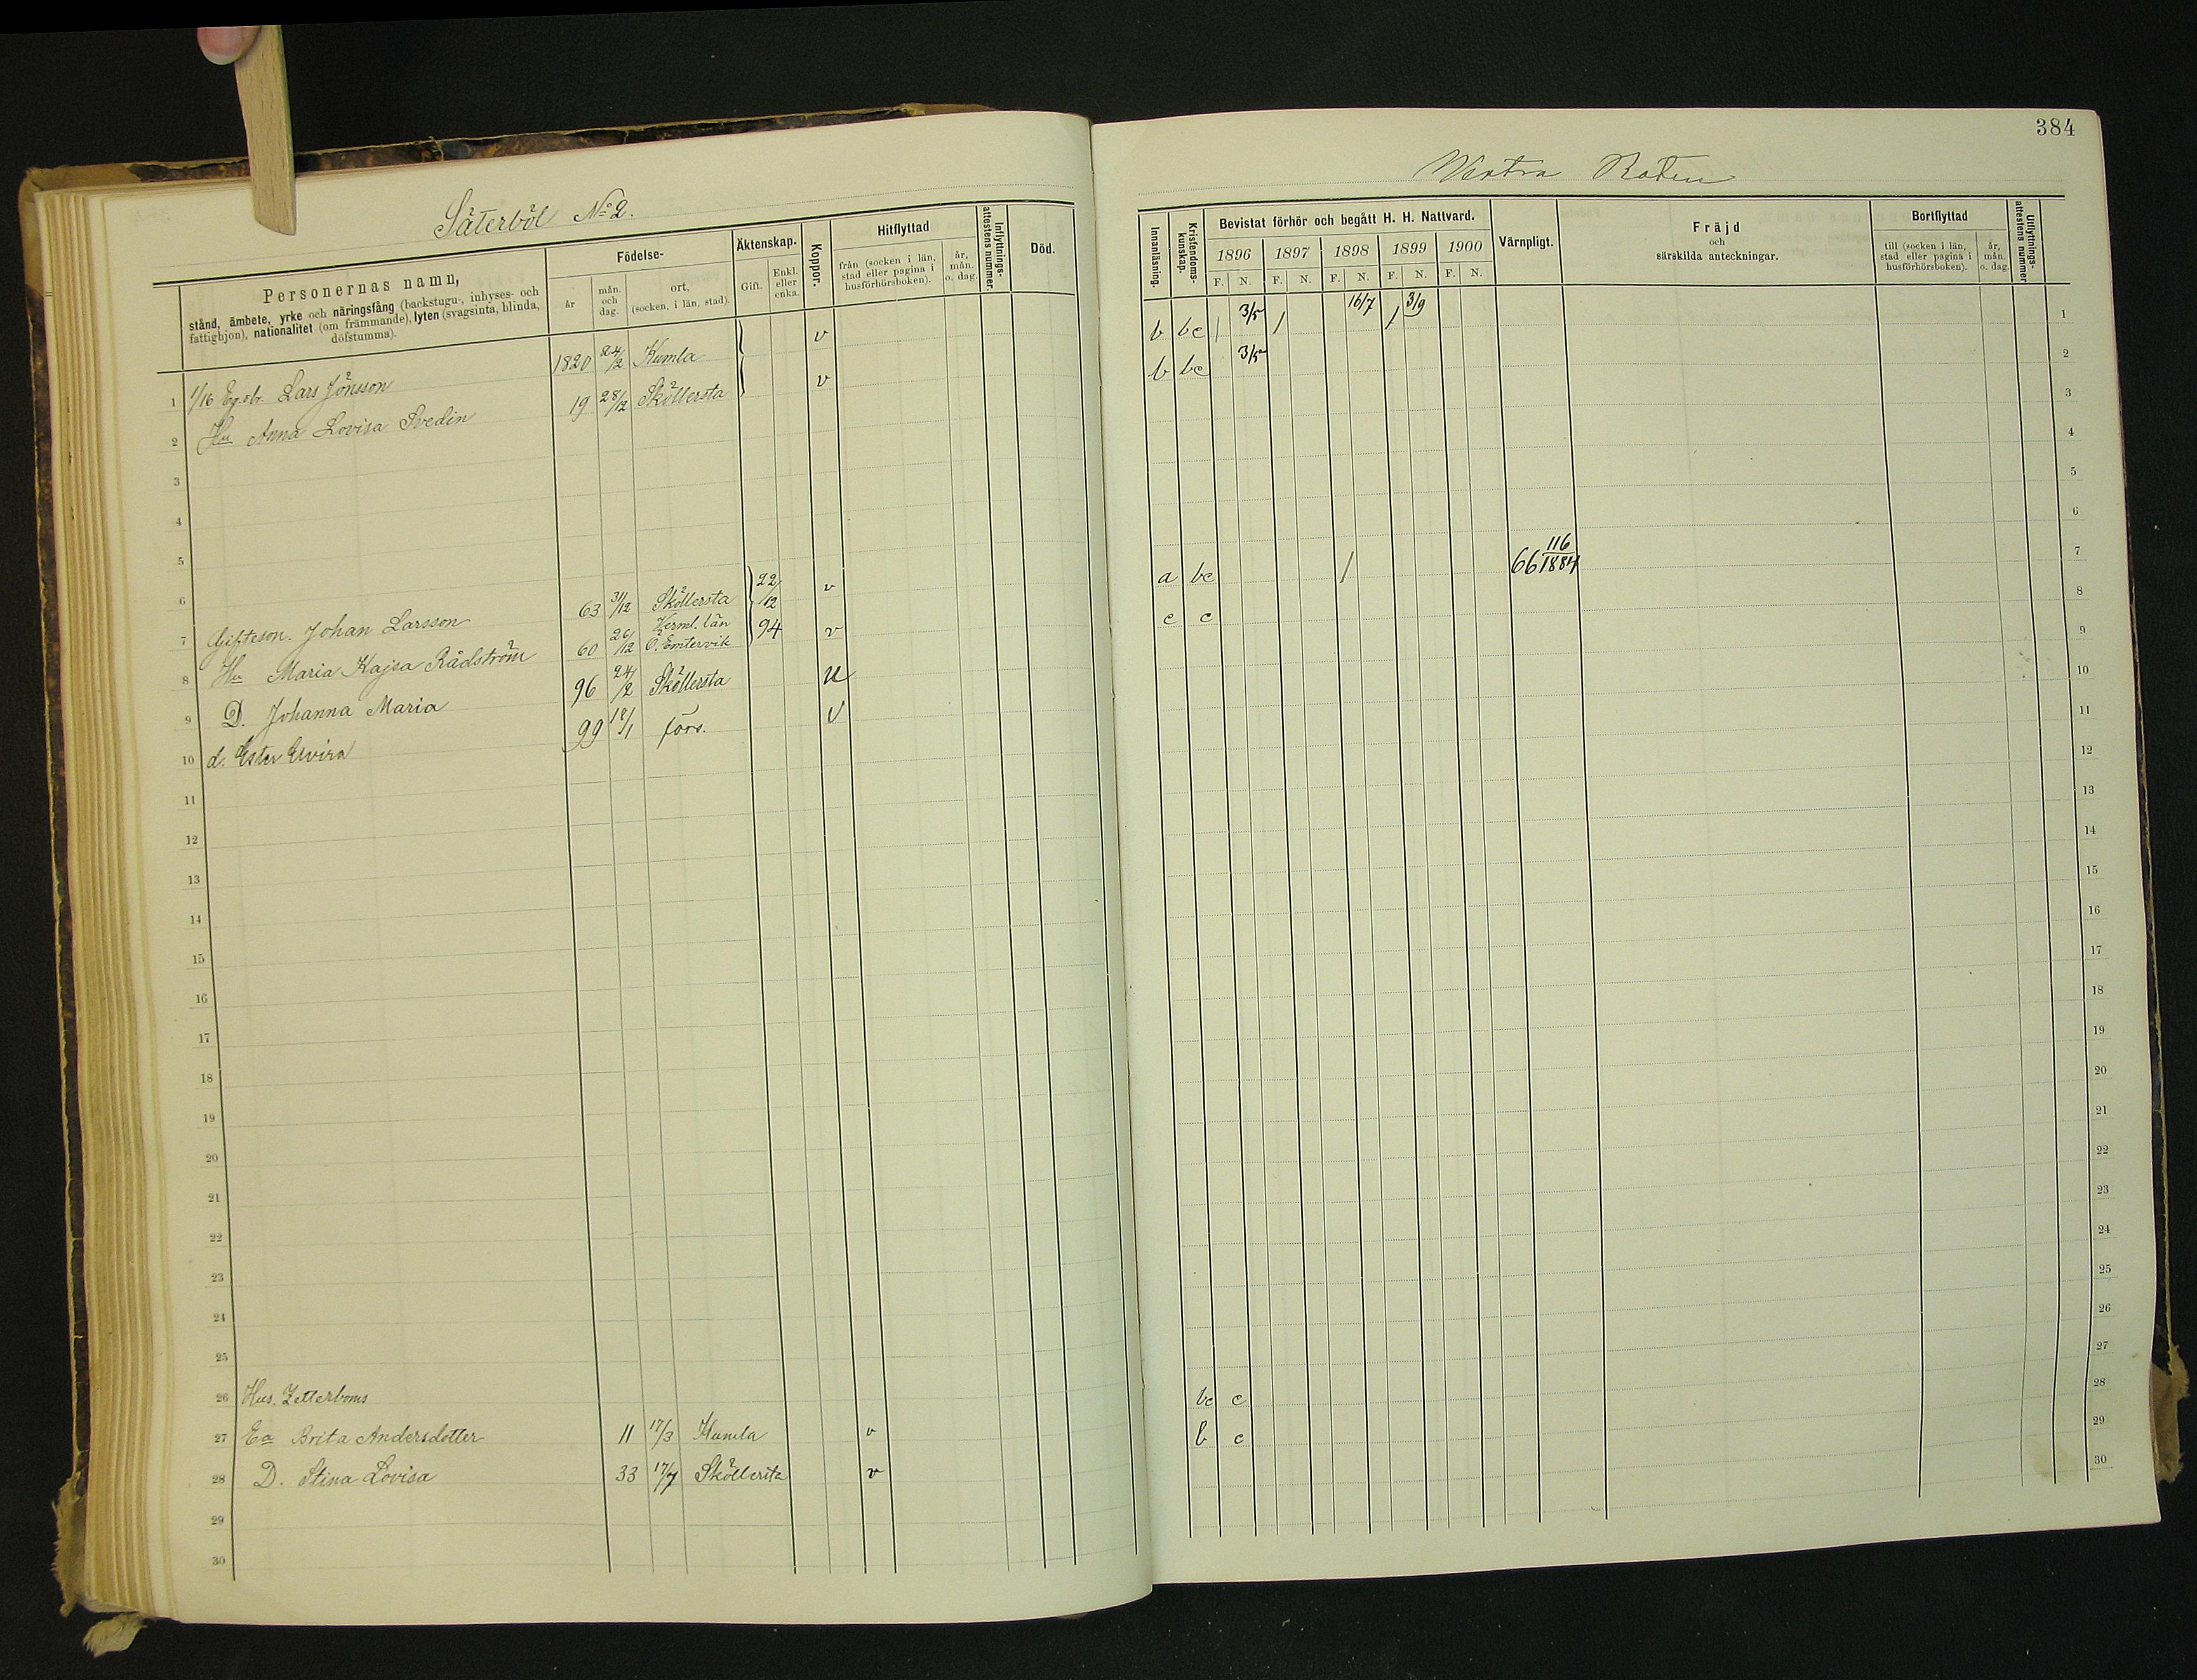 384
Säterböl No 2.
Westra Roten
Personernas namn,
stånd, ämbete, yrke och näringsfång (backstugu-, inhyses- och
fattighjon), nationalitet (om främmande), lyten (svagsinta, blinda,
döfstumma).
Födelse-
år
mån. och dag.
ort, (socken, i län, stad).
Äktenskap.
Gift.
Enkl. eller enka.
Koppor.
Hitflyttad
från (socken i län, stad eller pagina i husförhörsboken).
år, mån. o. dag.
Inflyttnings-attestens nummer.
Död.
Innanläsning.
Kristendoms-kunskap.
Bevistat förhör och begått H. H. Nattvard.
1896 1897 1898 1899 1900
F. N. F. N. F. N. F. N. F. N.
Värnpligt.
Fräjd
och
särskilda anteckningar.
Bortflyttad
till (socken i län, stad eller pagina i husförhörsboken).
år, mån. o. dag.
Utflyttnings-attestens nummer
1 1/16 Eg. br. Lars Jönsson 1820 24/2 Kumla v b bc / 3/5 / 16/7 / 3/9 1
2 Hu Anna Lovisa Svedin 19 28/12 Sköllersta v b bc 3/5 2
3 3
4 4
5 5
6 6
7 Gifteson. Johan Larsson 63 31/12 Sköllersta 22/12 94 v a bc / 66 116/1884 7
8 Hu Maria Kajsa Rådström 60 26/12 Verml. län Ö. Emtervik v c c 8
9 D. Johanna Maria 96 24/2 Sköllersta u 9
10 d. Ester Elvira 99 18/1 förs. v 10
11 11
12 12
13 13
14 14
15 15
16 16
17 17
18 18
19 19
20 20
21 21
22 22
23 23
24 24
25 25
26 Hus. Zetterboms 26
27 Ea Brita Andersdotter 11 17/3 Kumla v bc c 27
28 D. Stina Lovisa 33 17/7 Sköllersta v b c 28
29 29
30 30